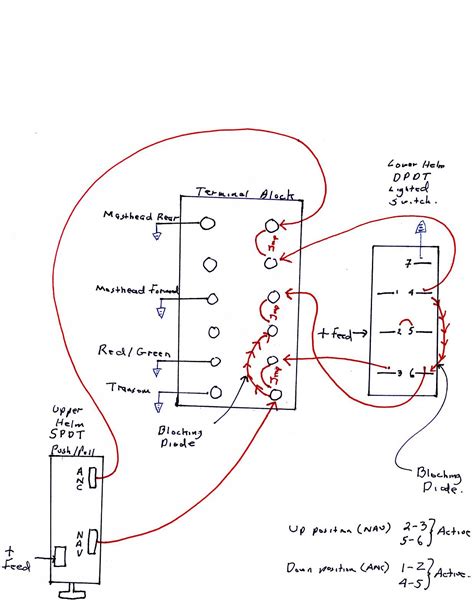 Lower Helm
DPDT
Lighted
Switch.
Terminal Block
Masthead Rear
Jmp
7
Masthead Forward
Jmp
1 4
+ feed
2 5
Red/Green
Jmp
3 6
Transom
Blocking
Diode
Upper
Helm
SPDT
Push/Pull
ANC
NAV
+
Feed
Blocking
Diode.
Up position (NAV) 2-3
5-6
Active
Down position (ANC) 1-2
4-5
Active.